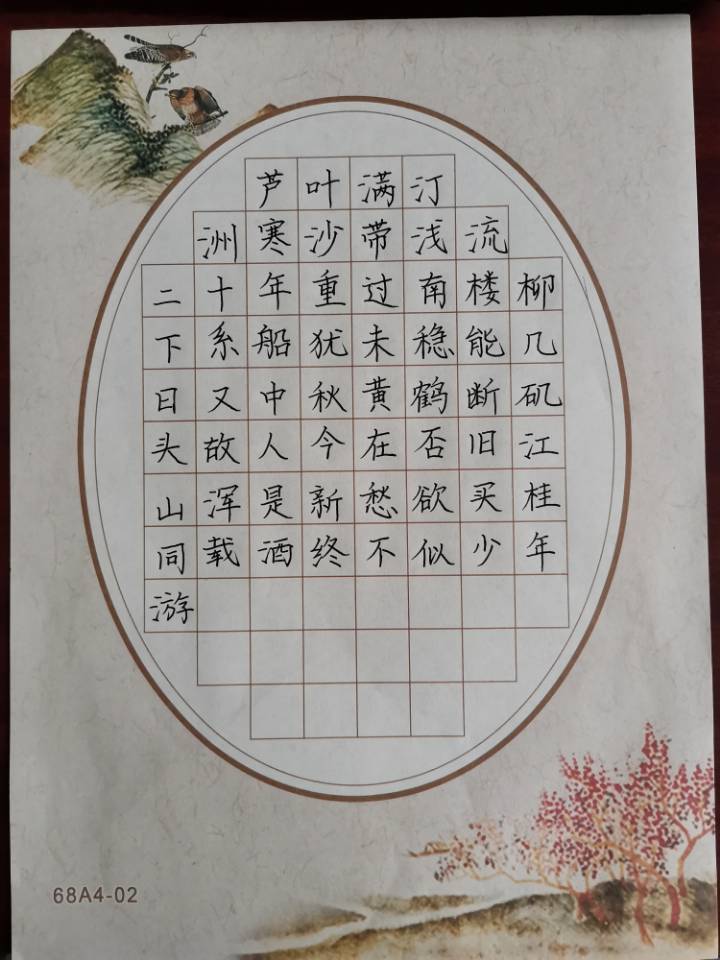 芦叶满汀
洲寒沙带浅流
二十年重过南楼柳
下系船犹未稳能几
日又中秋黄鹤断矶
头故人今在否旧江
山浑是新愁欲买桂
同载酒终不似少年
游
68A4-02